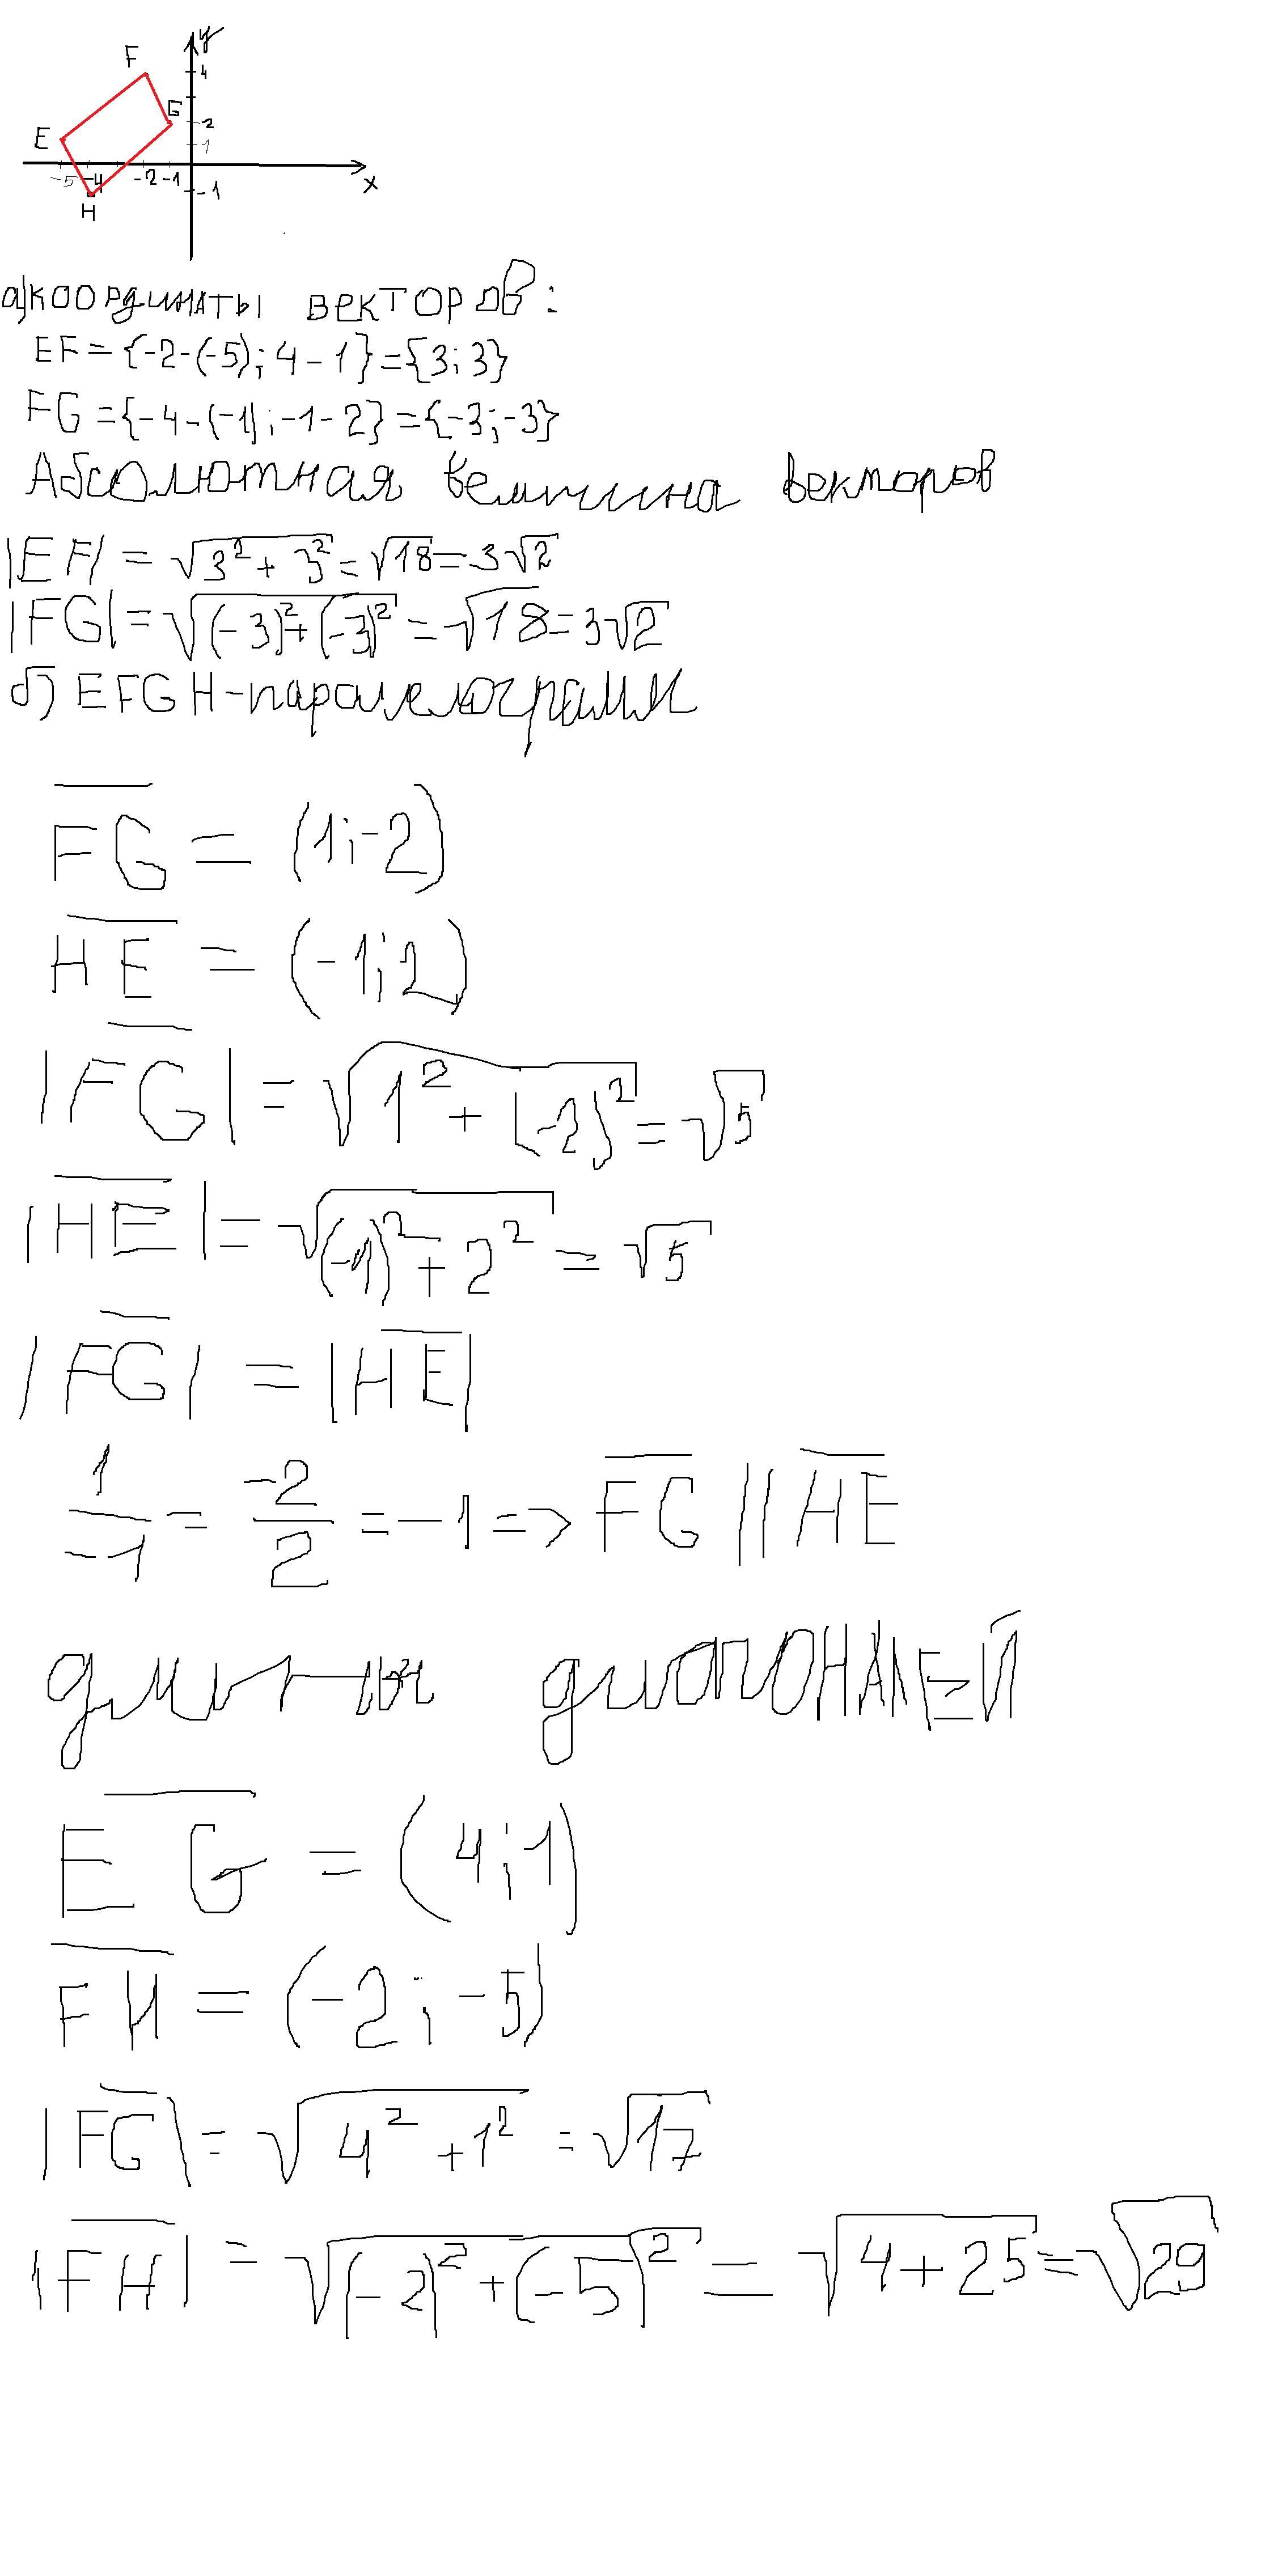 y
F
4
G
2
E
1
-5 -4 -2 -1
-1
x
H
а) координаты векторов:
EF = {-2-(-5); 4-1} = {3; 3}
FG = {-4-(-1); -1-2} = {-3; -3}
Абсолютная величина векторов
|EF| = √(3² + 3²) = √18 = 3√2
|FG| = √((-3)² + (-3)²) = √18 = 3√2
б) EFGH-паралелограмм
FG = (1; -2)
HE = (-1; 2)
|FG| = √(1² + (-2)²) = √5
|HE| = √((-1)² + 2²) = √5
|FG| = |HE|
1/-1 = -2/2 = -1 => FG || HE
длины диагоналей
EG = (4; 1)
FH = (-2; -5)
|FG| = √(4² + 1²) = √17
|FH| = √((-2)² + (-5)²) = √(4 + 25) = √29